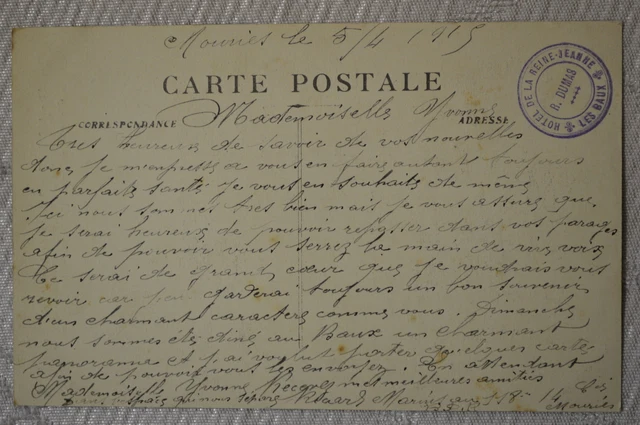 Mouriès le 5/4 1915
CARTE POSTALE
HOTEL DE LA REINE-JEANNE
R. DUMAS
LES BAUX
CORRESPONDANCE
ADRESSE
Mademoiselle Yvonne
tres heureux de savoir de vos nouvelles
donc je m'empresse a vous en faire autant toujours
en parfaite santé je vous en souhaite de même
Ici nous sommes tres bien mais je vous assure que
je serai heureux de pouvoir repasser dans vos parages
afin de pouvoir vous serrez la main de vive voix
Ce serai de grand cœur que je voudrais vous
revoir car garderai toujours un bon souvenir
d'un charmant caractère comme vous. Dimanche
nous sommes été diné aux Baux un charmant
panorama et j'ai voulut porter quelques cartes
afin de pouvoir vous les envoyez. En attendant
Mademoiselle Yvonne recevez mes meilleures amitiés
qui nous sépare
Mouriès